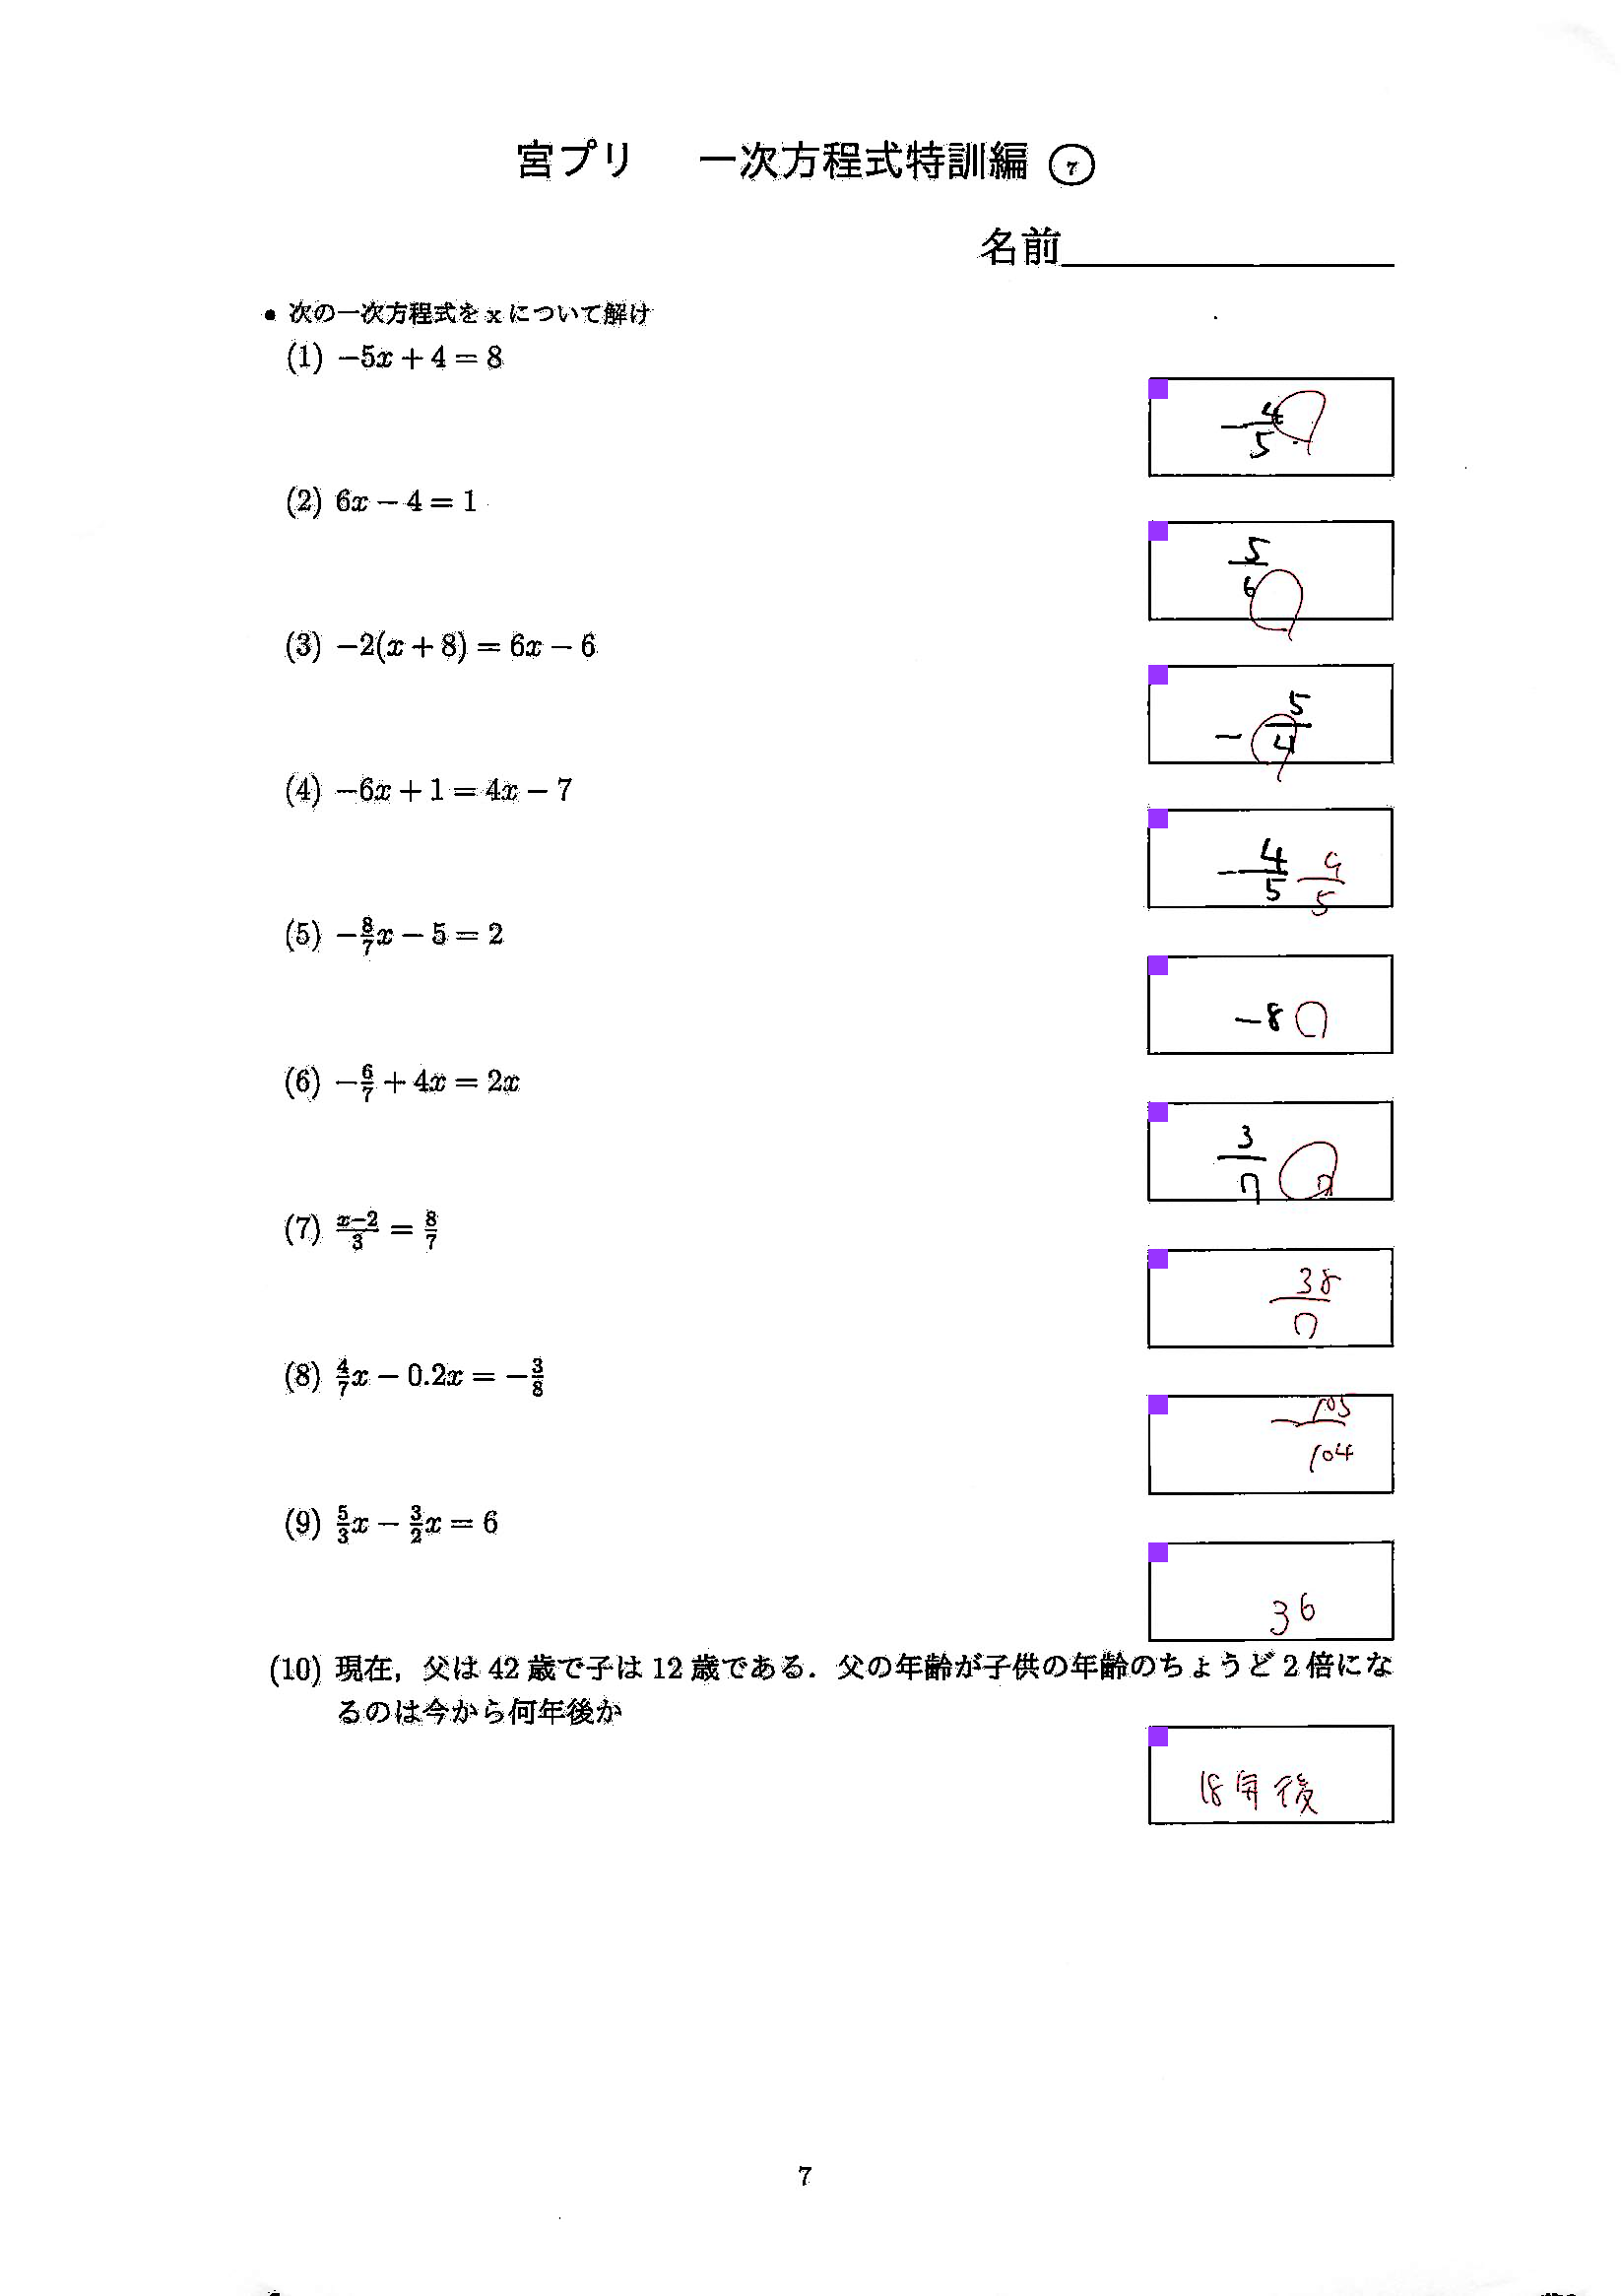 宮プリ 一次方程式特訓編 ⑦
名前
• 次の一次方程式を x について解け
(1) −5x + 4 = 8
−4/5
(2) 6x − 4 = 1
5/6
(3) −2(x + 8) = 6x − 6
−5/4
(4) −6x + 1 = 4x − 7
−4/5 4/5
(5) −8/7x − 5 = 2
−8
(6) −6/7 + 4x = 2x
3/7
(7) x−2/3 = 8/7
38/7
(8) 4/7x − 0.2x = −3/8
−105/104
(9) 5/3x − 3/2x = 6
36
(10) 現在，父は 42 歳で子は 12 歳である．父の年齢が子供の年齢のちょうど 2 倍にな
るのは今から何年後か
18年後
7